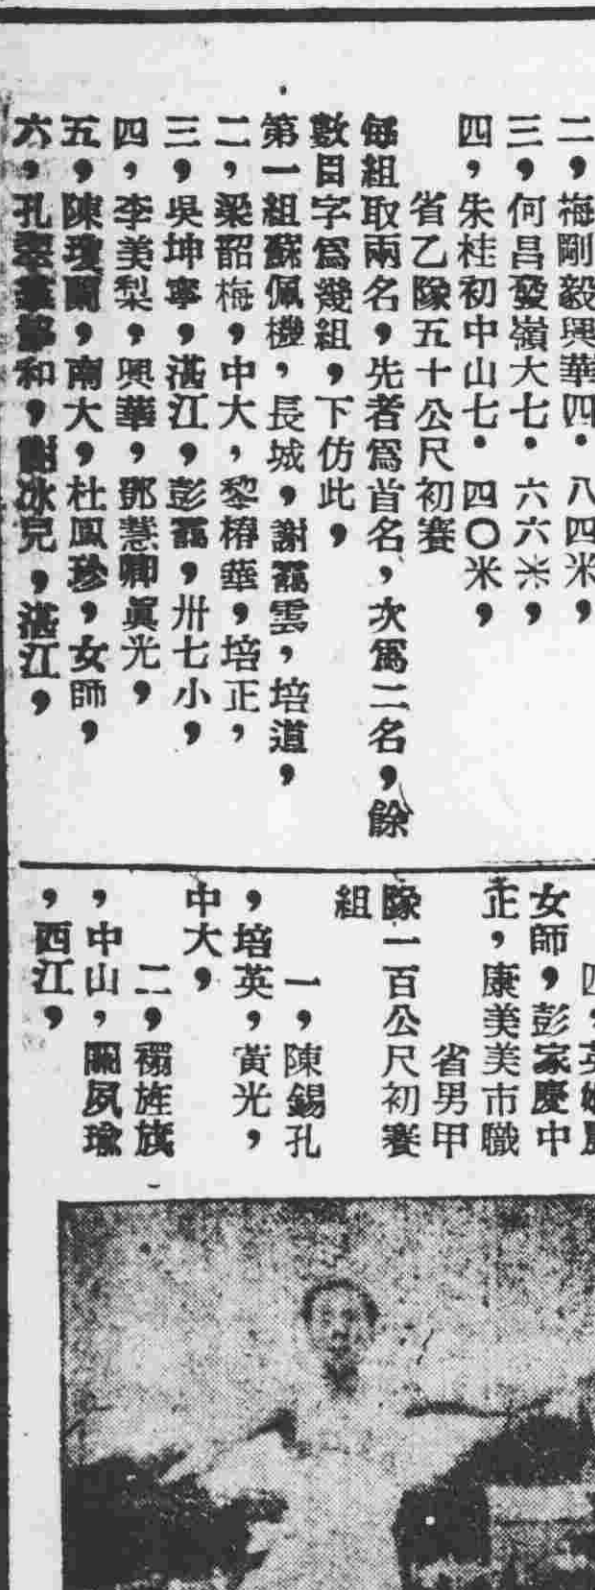 二，梅剛毅興華四．八四米，
三，何昌發嶺大七．六六米，
四，朱桂初中山七．四〇米，
省乙隊五十公尺初賽
每組取兩名，先者爲首名，次爲二名，餘
數目字爲幾組，下仿此，
第一組蘇佩機，長城，謝靄雲，培道，
二，梁韶梅，中大，黎椿華，培正，
三，吳坤寧，湛江，彭靄，卅七小，
四，李美梨，興華，鄧慧卿眞光，
五，陳瓊蘭，南大，杜鳳珍，女師，
六，孔翠 和，謝冰兒，湛江，
四，英
女師，彭家慶中
正，康美美市職
省男甲
隊一百公尺初賽
組
一，陳錫孔
，培英，黃光，
中大，
二，禤旌旗
，中山，關夙瑜
，西江，